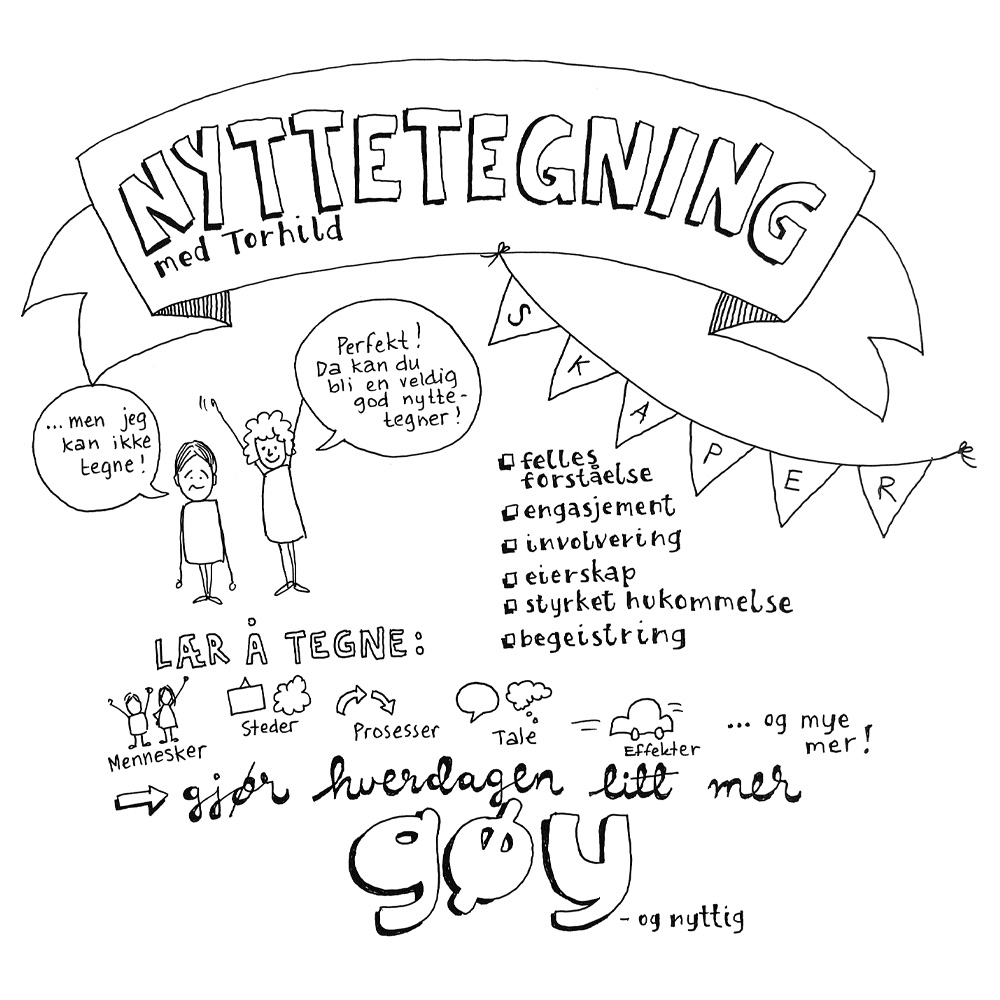 NYTTETEGNING
med Torhild
... men jeg
kan ikke
tegne!
Perfekt!
Da kan du
bli en veldig
god nytte-
tegner!
SKAPER
felles
forståelse
engasjement
involvering
eierskap
styrket hukommelse
begeistring
LÆR Å TEGNE:
Mennesker
Steder
Prosesser
Tale
Effekter
... og mye
mer!
gjør hverdagen litt mer
gøy
- og nyttig